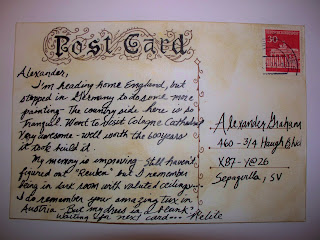 Post Card
30
Alexander,
I'm heading home England, but
stopped in Germany to do some more
painting - The country side here is so
tranquil. Went to visit Cologne Cathedral
Very awesome - well worth the 600 years
it took build it.
My memory is improving. Still haven't
figured out "Reuben" but I remember
being in dark room with vaulted ceilings -
I do remember your amazing Tux in
Austria - But my dress is a blank?
Waiting for next card...
Alexander Graham
460 - 3/4
Sepiaville, SV